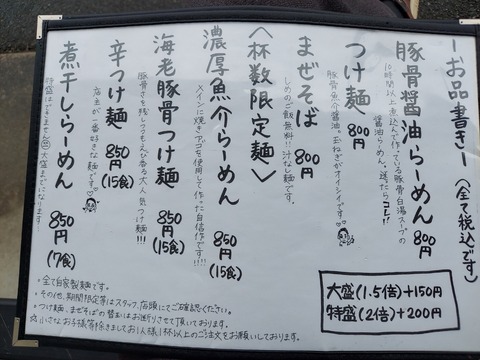 ーお品書きー（全て税込です）
豚骨醤油らーめん 800円
10時間以上煮込んで作っている豚骨白湯スープの
醤油らーめん。迷ったらコレ!!
つけ麺 800円
豚骨魚介醤油。玉ねぎがオイシイです!
まぜそば 800円
しめのご飯無料!!汁なし麺です。
〈杯数限定麺〉
濃厚魚介らーめん 850円(15食)
メインに焼きアゴを使用して作った自信作です!!!
海老豚骨つけ麺 850円(15食)
豚骨さを残しつつもえび香る大人気つけ麺!!!
辛つけ麺 850円(15食)
店主が一番好きな麺です♡
煮干しらーめん 850円(7食)
特盛はできません 大盛までになります!
大盛(1.5倍)+150円
特盛(2倍)+200円
・全て自家製麺です。
・その他、期間限定等はスタッフ、店頭にてご確認ください。
・つけ麺、まぜそばの替玉はお断りさせて頂いております。
☆小さなお子様等除きましてお1人様1杯以上のご注文をお願いしております。